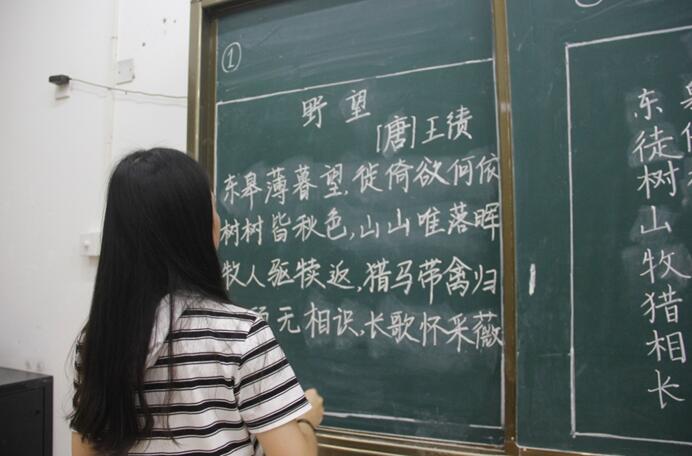 ①
野望
[唐]王绩
东皋薄暮望,徙倚欲何依
树树皆秋色,山山唯落晖
牧人驱犊返,猎马带禽归
无相识,长歌怀采薇
东徙树山牧猎相长